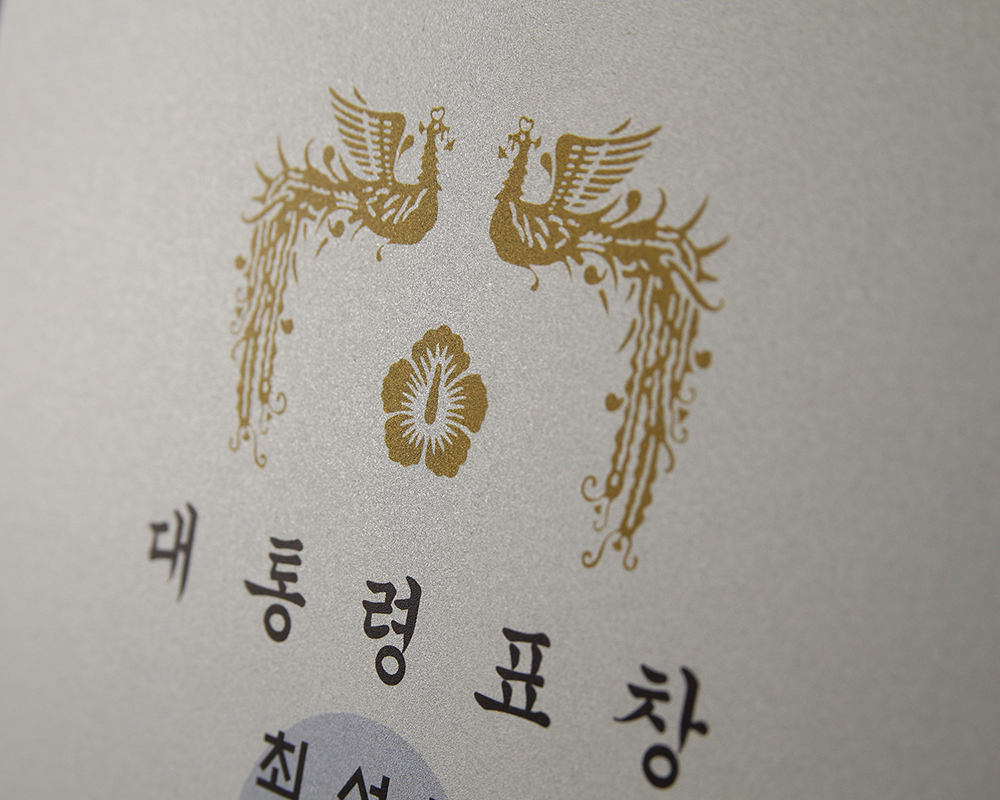 대통령표창
최